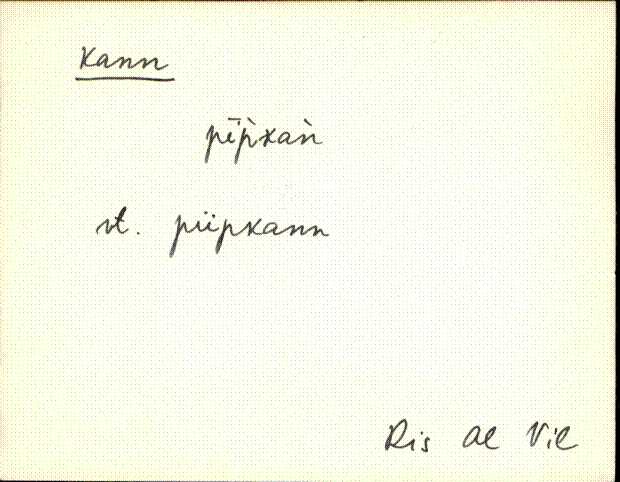 Kann
pīp̀kaǹ
vt. piipkann
Ris Al Vil